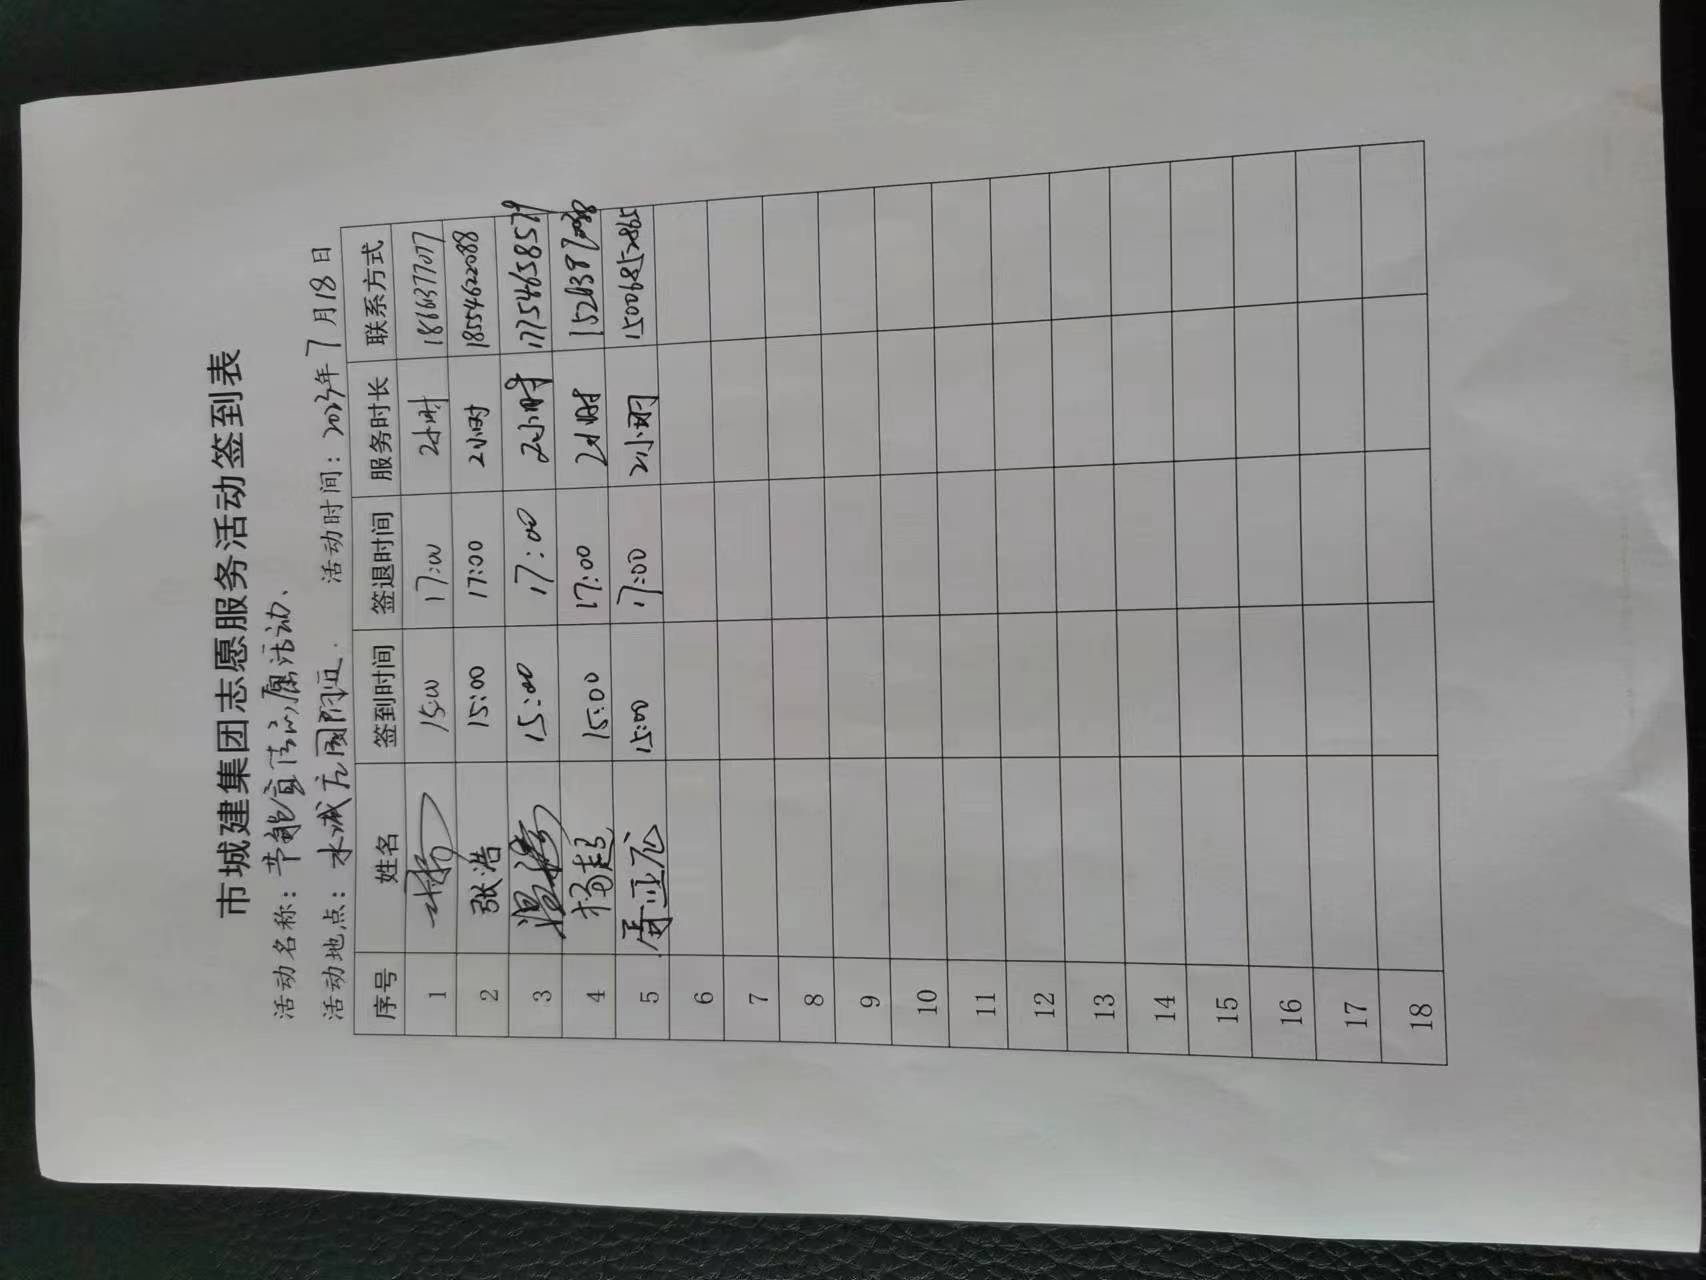 市城建集团志愿服务活动签到表
活动名称：节能宣传志愿活动、
活动地点：水城庄园附近. 活动时间：2023年7月18日
序号 姓名 签到时间 签退时间 服务时长 联系方式
1 15:00 17:00 2小时 18663777077
2 张浩 15:00 17:00 2小时 18554622088
3 15:00 17:00 2小时 17754658579
4 杨超 15:00 17:00 2小时
5 周亚龙 15:00 17:00 2小时 15006852865
6
7
8
9
10
11
12
13
14
15
16
17
18